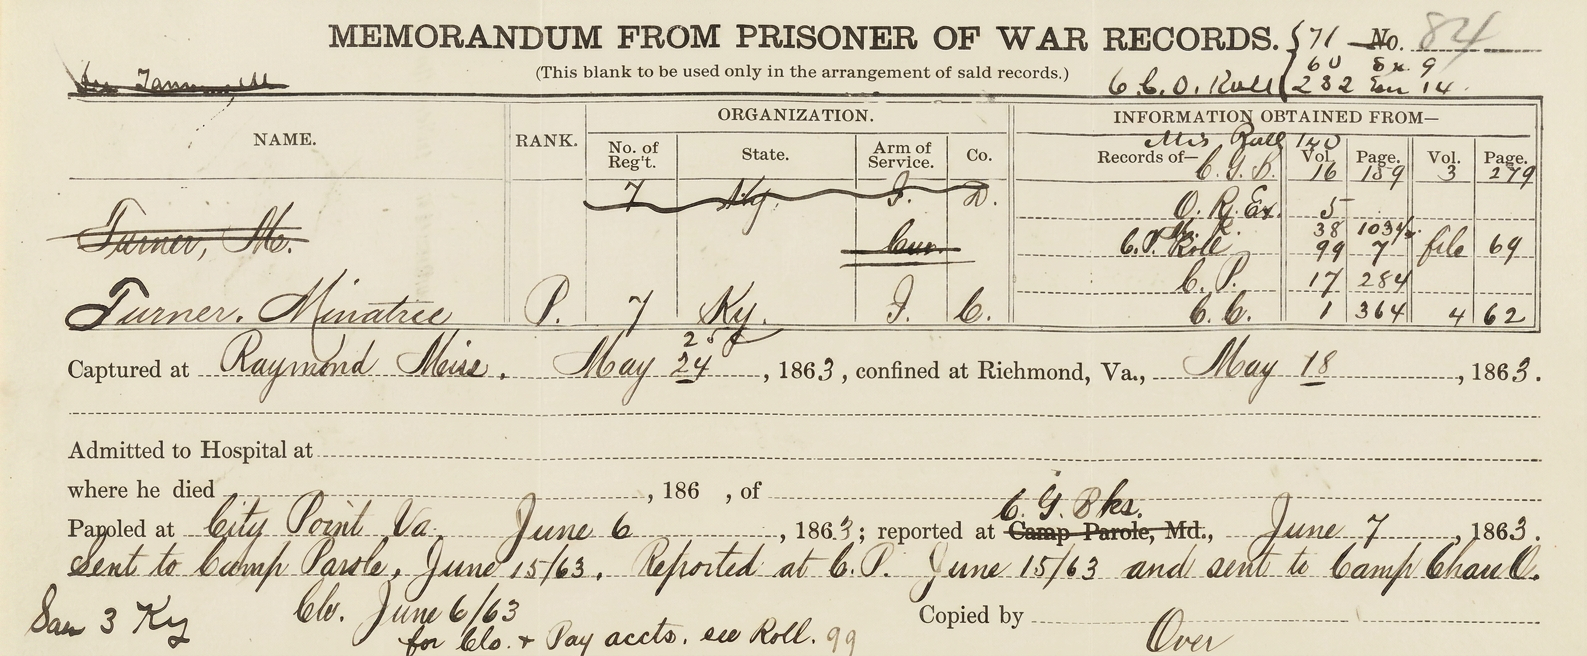 MEMORANDUM FROM PRISONER OF WAR RECORDS. { 71 No. 84
(This blank to be used only in the arrangement of said records.) 60 Ex. 9
C. C. O. Roll 232 14.
NAME. RANK. ORGANIZATION. INFORMATION OBTAINED FROM—
No. of Reg't. State. Arm of Service. Co. Mis Roll 140
Records of— Vol. Page. Vol. Page.
C. G. B. 16 189 3 279
7 Ky. I. D.
O. R. Ex. 5
38 103½
Turner, M. Cav. C.P. Roll 99 7 file 69
C. P. 17 284
Turner, Minatree P. 7 Ky. I. C. C. C. 1 364 4 62
25
Captured at Raymond Miss. May 24, 1863, confined at Richmond, Va., May 18, 1863.
Admitted to Hospital at
where he died , 186 , of
C. G. Bks.
Paroled at City Point Va. June 6, 1863; reported at Camp Parole, Md., June 7, 1863.
Sent to Camp Parole, June 15/63. Reported at C.P. June 15/63 and sent to Camp Chase O.
3 Ky Clo. June 6/63 Copied by
for Clo. & Pay accts. see Roll. 99 Over